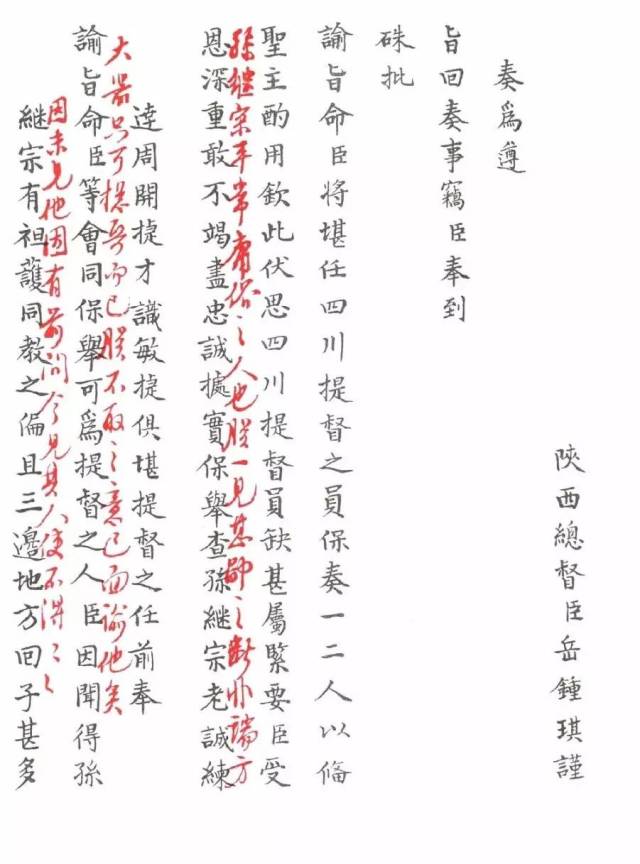 陝西總督臣岳鍾琪謹
奏爲遵
旨回奏事竊臣奉到
硃批
諭旨命臣將堪任四川提督之員保奏一二人以俻
聖主酌用欽此伏思四川提督員缺甚屬緊要臣受
孫継宗平常庸俗之人也朕一見甚鄙之斷非端方
恩深重敢不竭盡忠誠據實保舉查孫継宗老誠練
達周開捷才識敏捷俱堪提督之任前奉
大器只可総兵而已朕不取之意已面諭他矣
諭旨命臣等會同保舉可爲提督之人臣因聞得孫
因未見他因有前問今見其人使不得々々
継宗有袒護同教之偏且三邊地方回子甚多